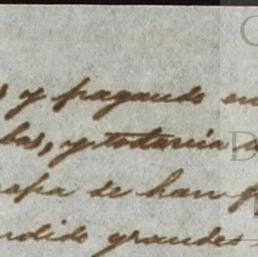 y pagando en
las, y todavia
ropa de han
ndido grandes